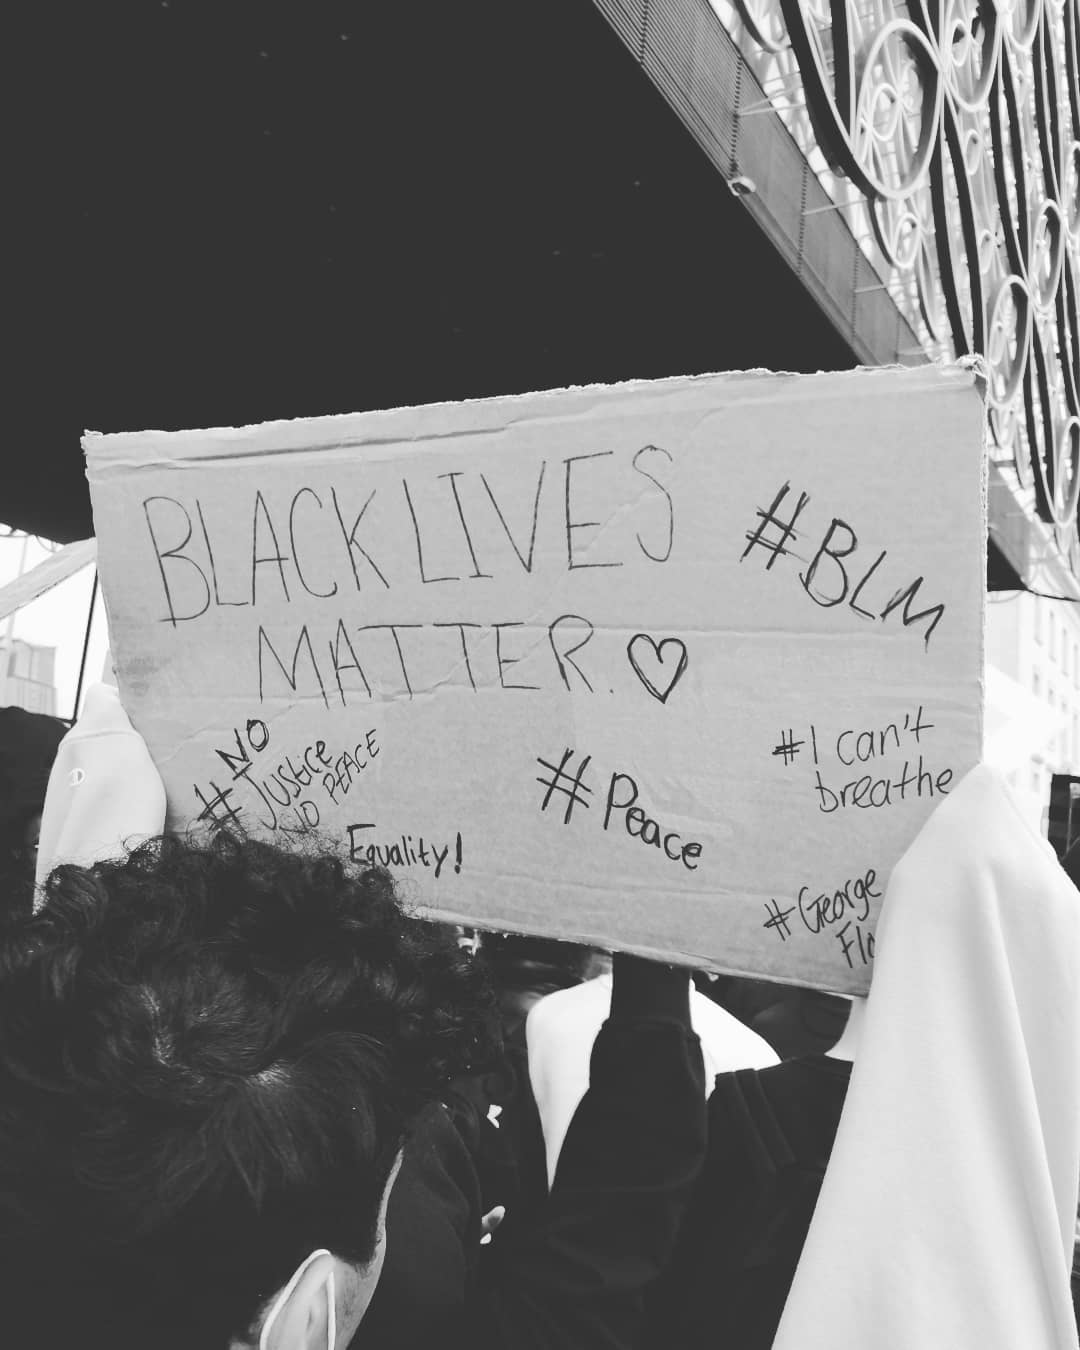 BLACK LIVES
MATTER. ♡
#BLM
#NO
JUSTICE
NO PEACE
Equality!
#Peace
#I can't
breathe
#George
Flo